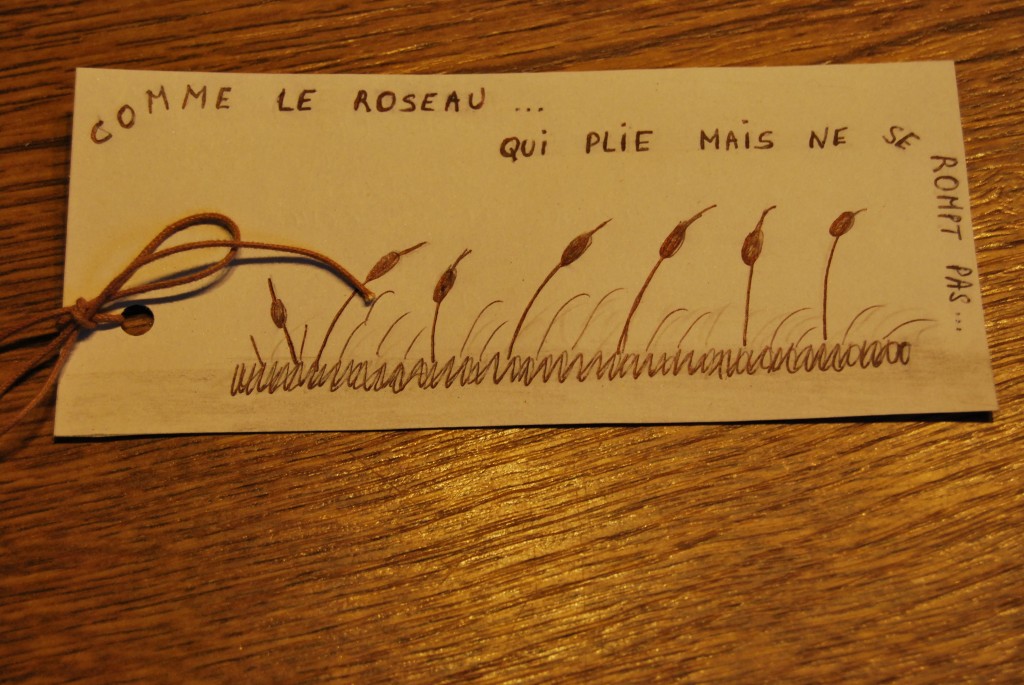 COMME LE ROSEAU ...
QUI PLIE MAIS NE SE ROMPT PAS...